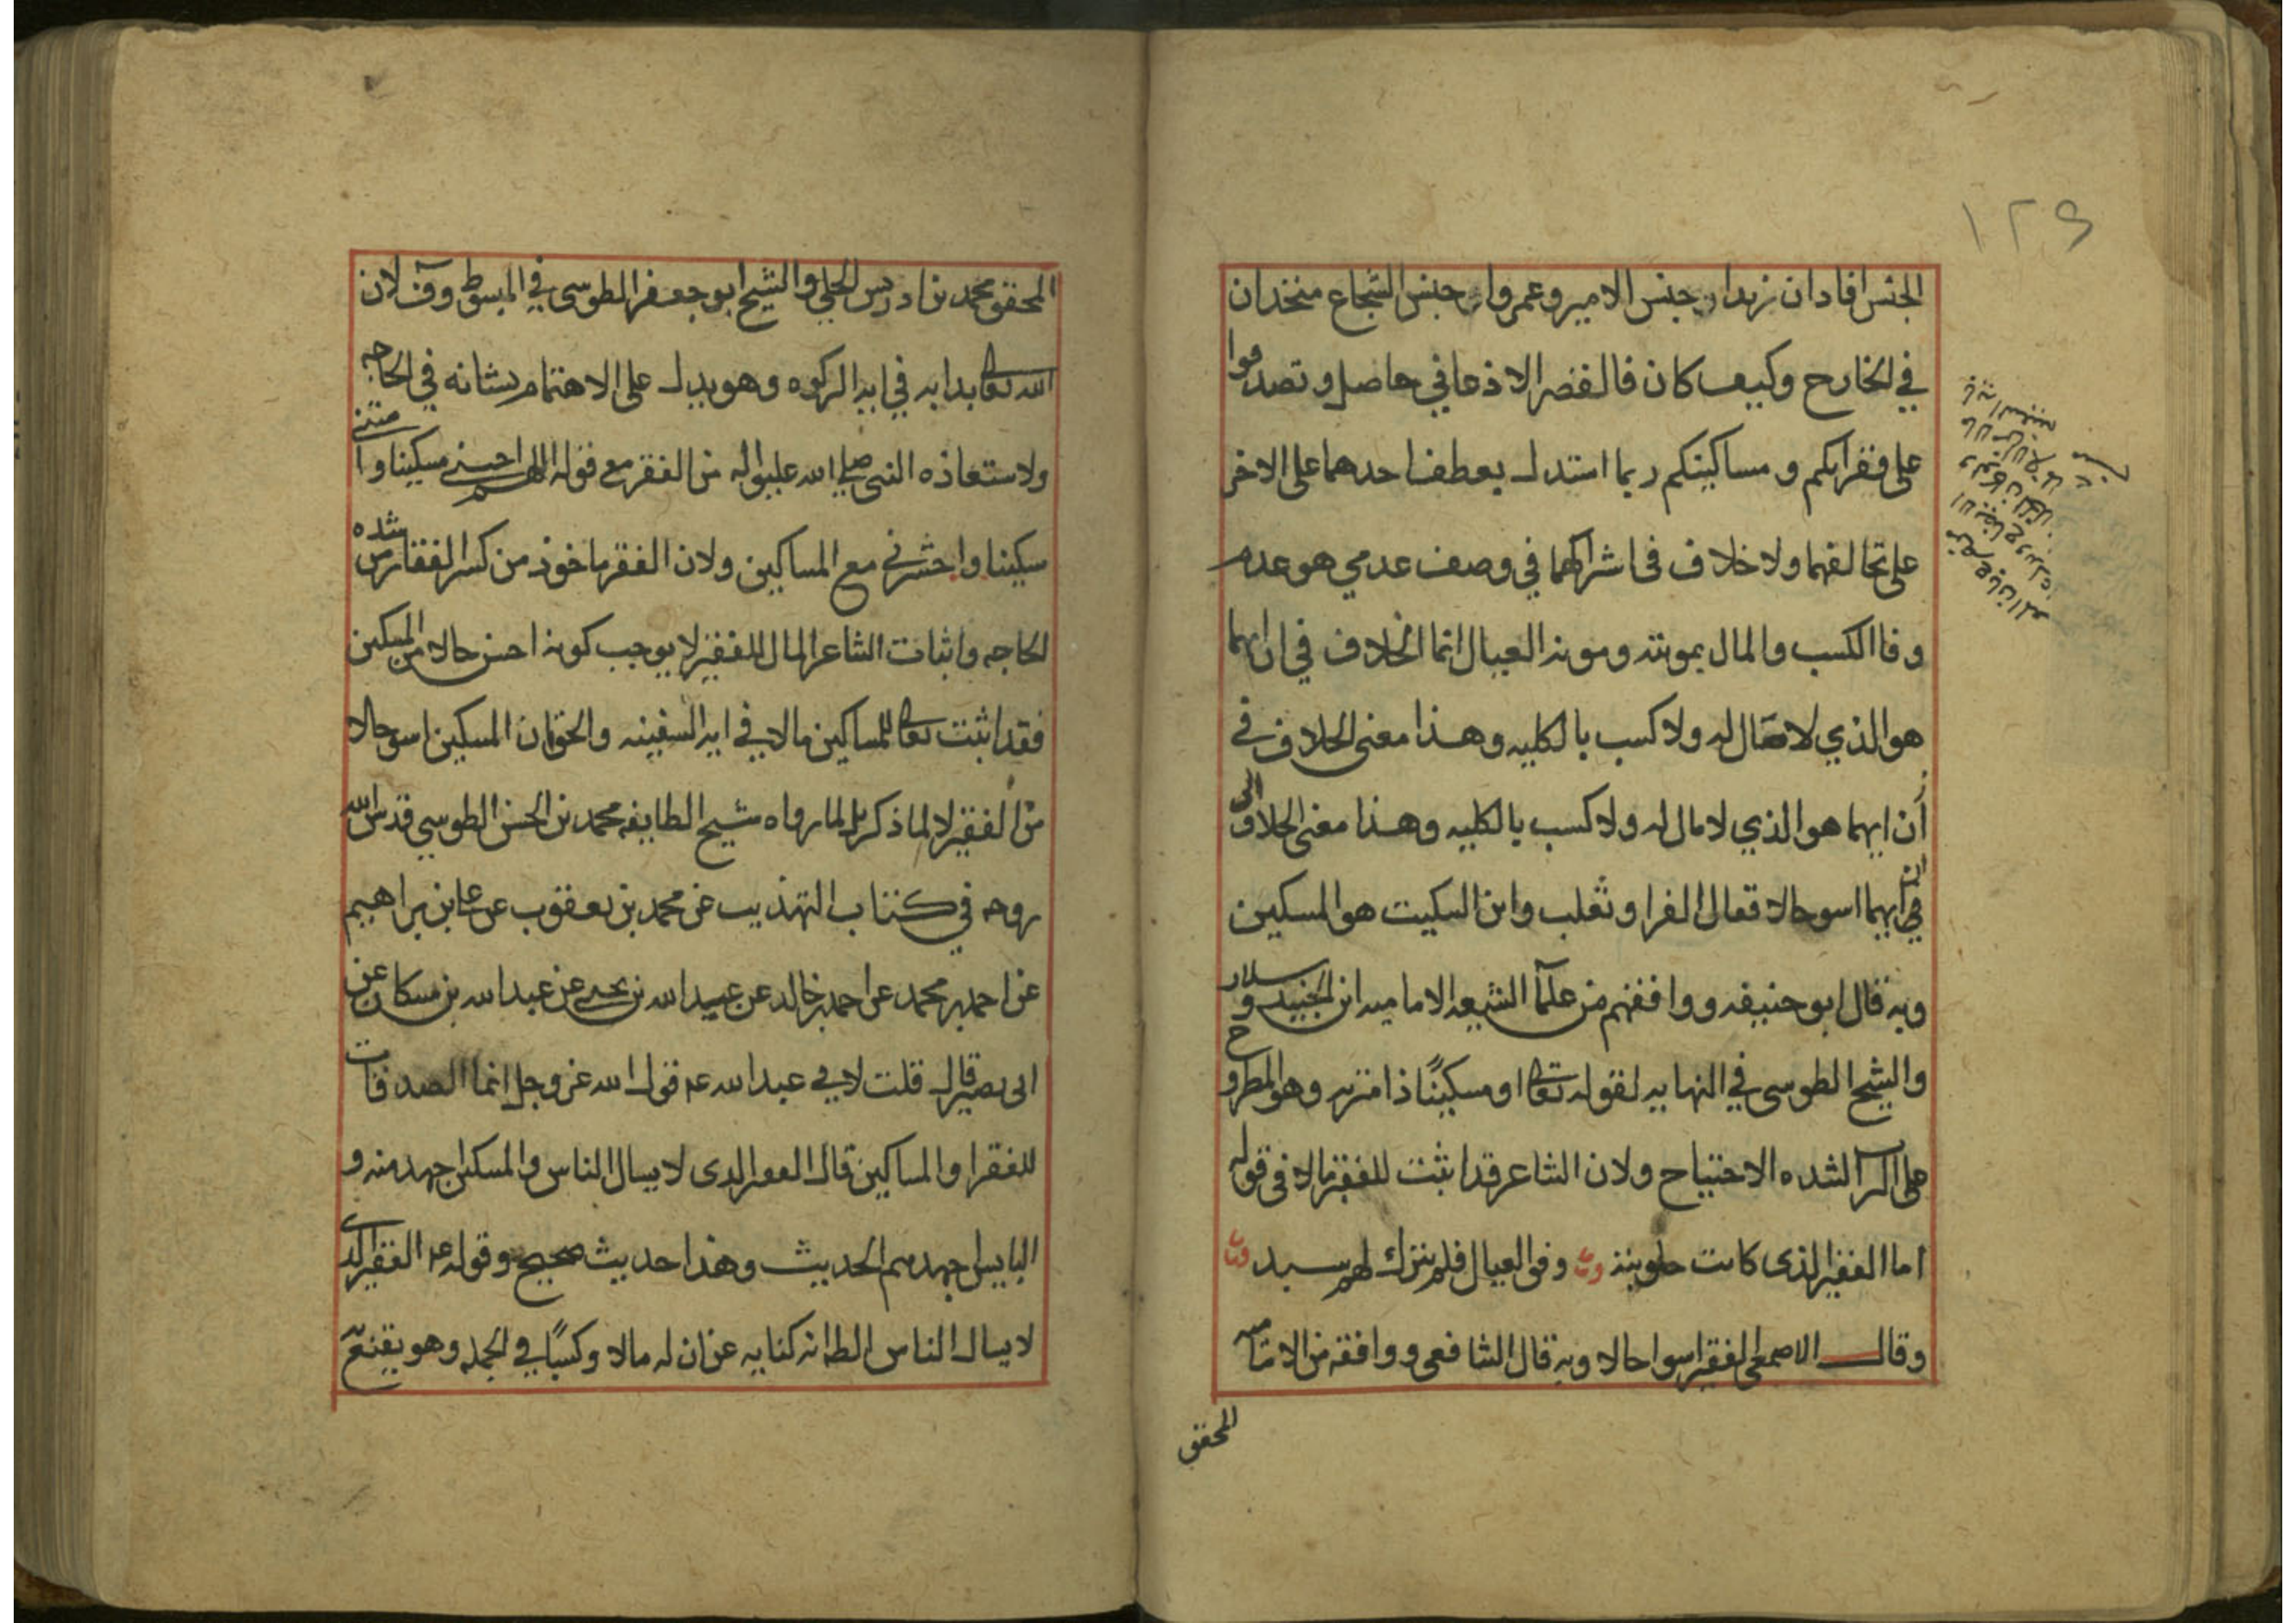 ١٢٩
الجنس افاد ان زيدا وجنس الامير وعمروا وجنس الشجاع متحدان
في الخارج وكيف كان فالقصر الاذعاني حاصل وتصدقوا
على فقرائكم ومساكينكم ربما استدل بعطف احدهما على الاخر
على تخالفهما ولا خلاف في اشراكهما في وصف عدمي هو عدم
وفا الكسب والمال بمونته ومونه العيال انما الخلاف في ان ايهما
هو الذي لا مال له ولا كسب بالكليه وهذا معنى الخلاف في
ان ايهما هو الذي لا مال له ولا كسب بالكليه وهذا معنى الخلاف
في ان ايهما اسو حالا فقال الفرا وثعلب وابن السكيت هو المسكين
وبه قال ابو حنيفه ووافقهم من علمآ الشيعه الاماميه ابن الجنيد وسلار
والشيخ الطوسي في النهايه لقوله تعالى او مسكينًا ذا متربه وهو المطروح
على التراب لشده الاحتياج ولان الشاعر قد اثبت للفقير مالا في قوله
اما الفقير الذي كانت حلوبته وفق العيال فلم يترك له سبد
وقال الاصمعي الفقير اسوا حالا وبه قال الشافعي ووافقه من الاماميه
المحقق
المحقق محمد بن ادريس الحلي والشيخ ابو جعفر الطوسي في المبسوط وف لان
الله تعالى بدا به في ايه الزكوه وهو يدل على الاهتمام بشانه في الحاجه
ولاستعاذه النبي صلى الله عليه واله من الفقر مع قوله اللهم احيني مسكينا وامتني
مسكينا واحشرني مع المساكين ولان الفقر ماخوذ من كسر الفقار من شده
الحاجه واثبات الشاعر المال للفقير لا يوجب كونه احسن حالا من المسكين
فقد اثبت تعالى للمساكين مالا في ايه السفينه والحق ان المسكين اسو حالا
من الفقير لا لما ذكر بل لما رواه شيخ الطايفه محمد بن الحسن الطوسي قدس الله
روحه في كتاب التهذيب عن محمد بن يعقوب عن علي بن ابراهيم
عن احمد بن محمد عن احمد بن خالد عن عبيد الله بن يحيى عن عبد الله بن مسكان عن
ابي بصير قال قلت لابي عبد الله عم قول الله عز وجل انما الصدقات
للفقرا والمساكين قال الفقير الذي لا يسال الناس والمسكين اجهد منه و
البايس اجهدهم الحديث وهذا حديث صحيح وقوله عم الفقير الذي
لا يسال الناس الظ انه كنايه عن ان له مالا وكسبًا في الجمله وهو يقنع